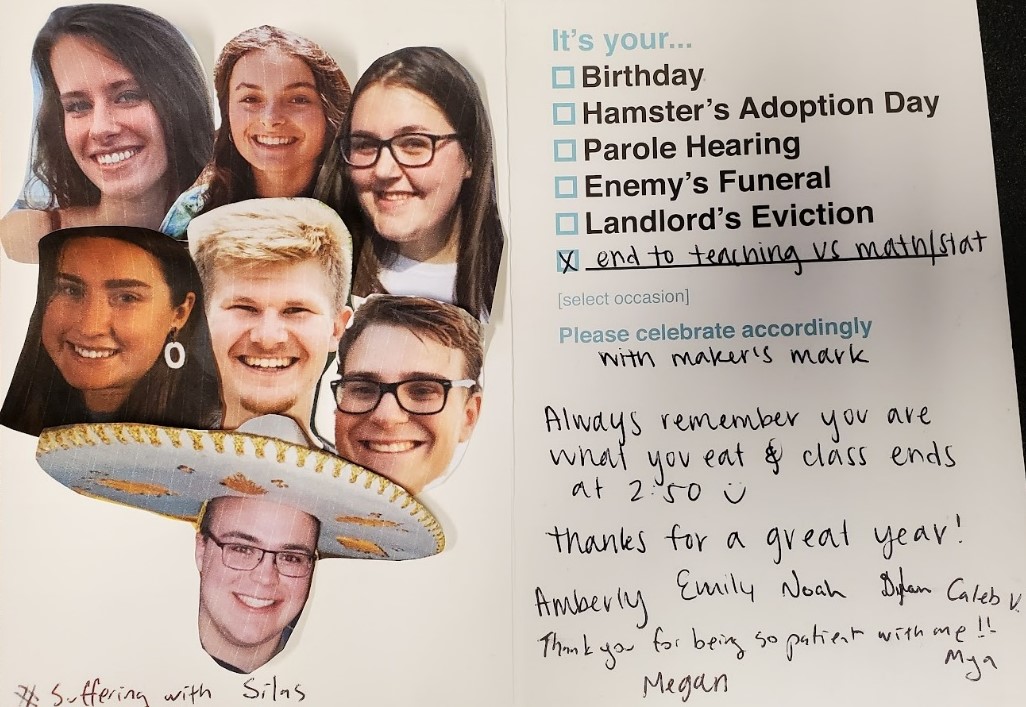 # Suffering with Silas
It's your...
Birthday
Hamster's Adoption Day
Parole Hearing
Enemy's Funeral
Landlord's Eviction
X end to teaching us math/stat
[select occasion]
Please celebrate accordingly
with maker's mark
Always remember you are
what you eat & class ends
at 2:50
thanks for a great year!
Amberly Emily Noah Dylan Caleb V.
Thank you for being so patient with me!!
Mya
Megan